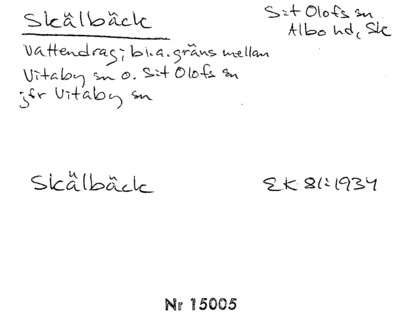 Skälbäck
S:t Olofs sn
Albo hd, Sk
Vattendrag; bl.a. gräns mellan
Vitaby sn o. S:t Olofs sn
jfr Vitaby sn
Skälbäck
EK 81:1934
Nr 15005